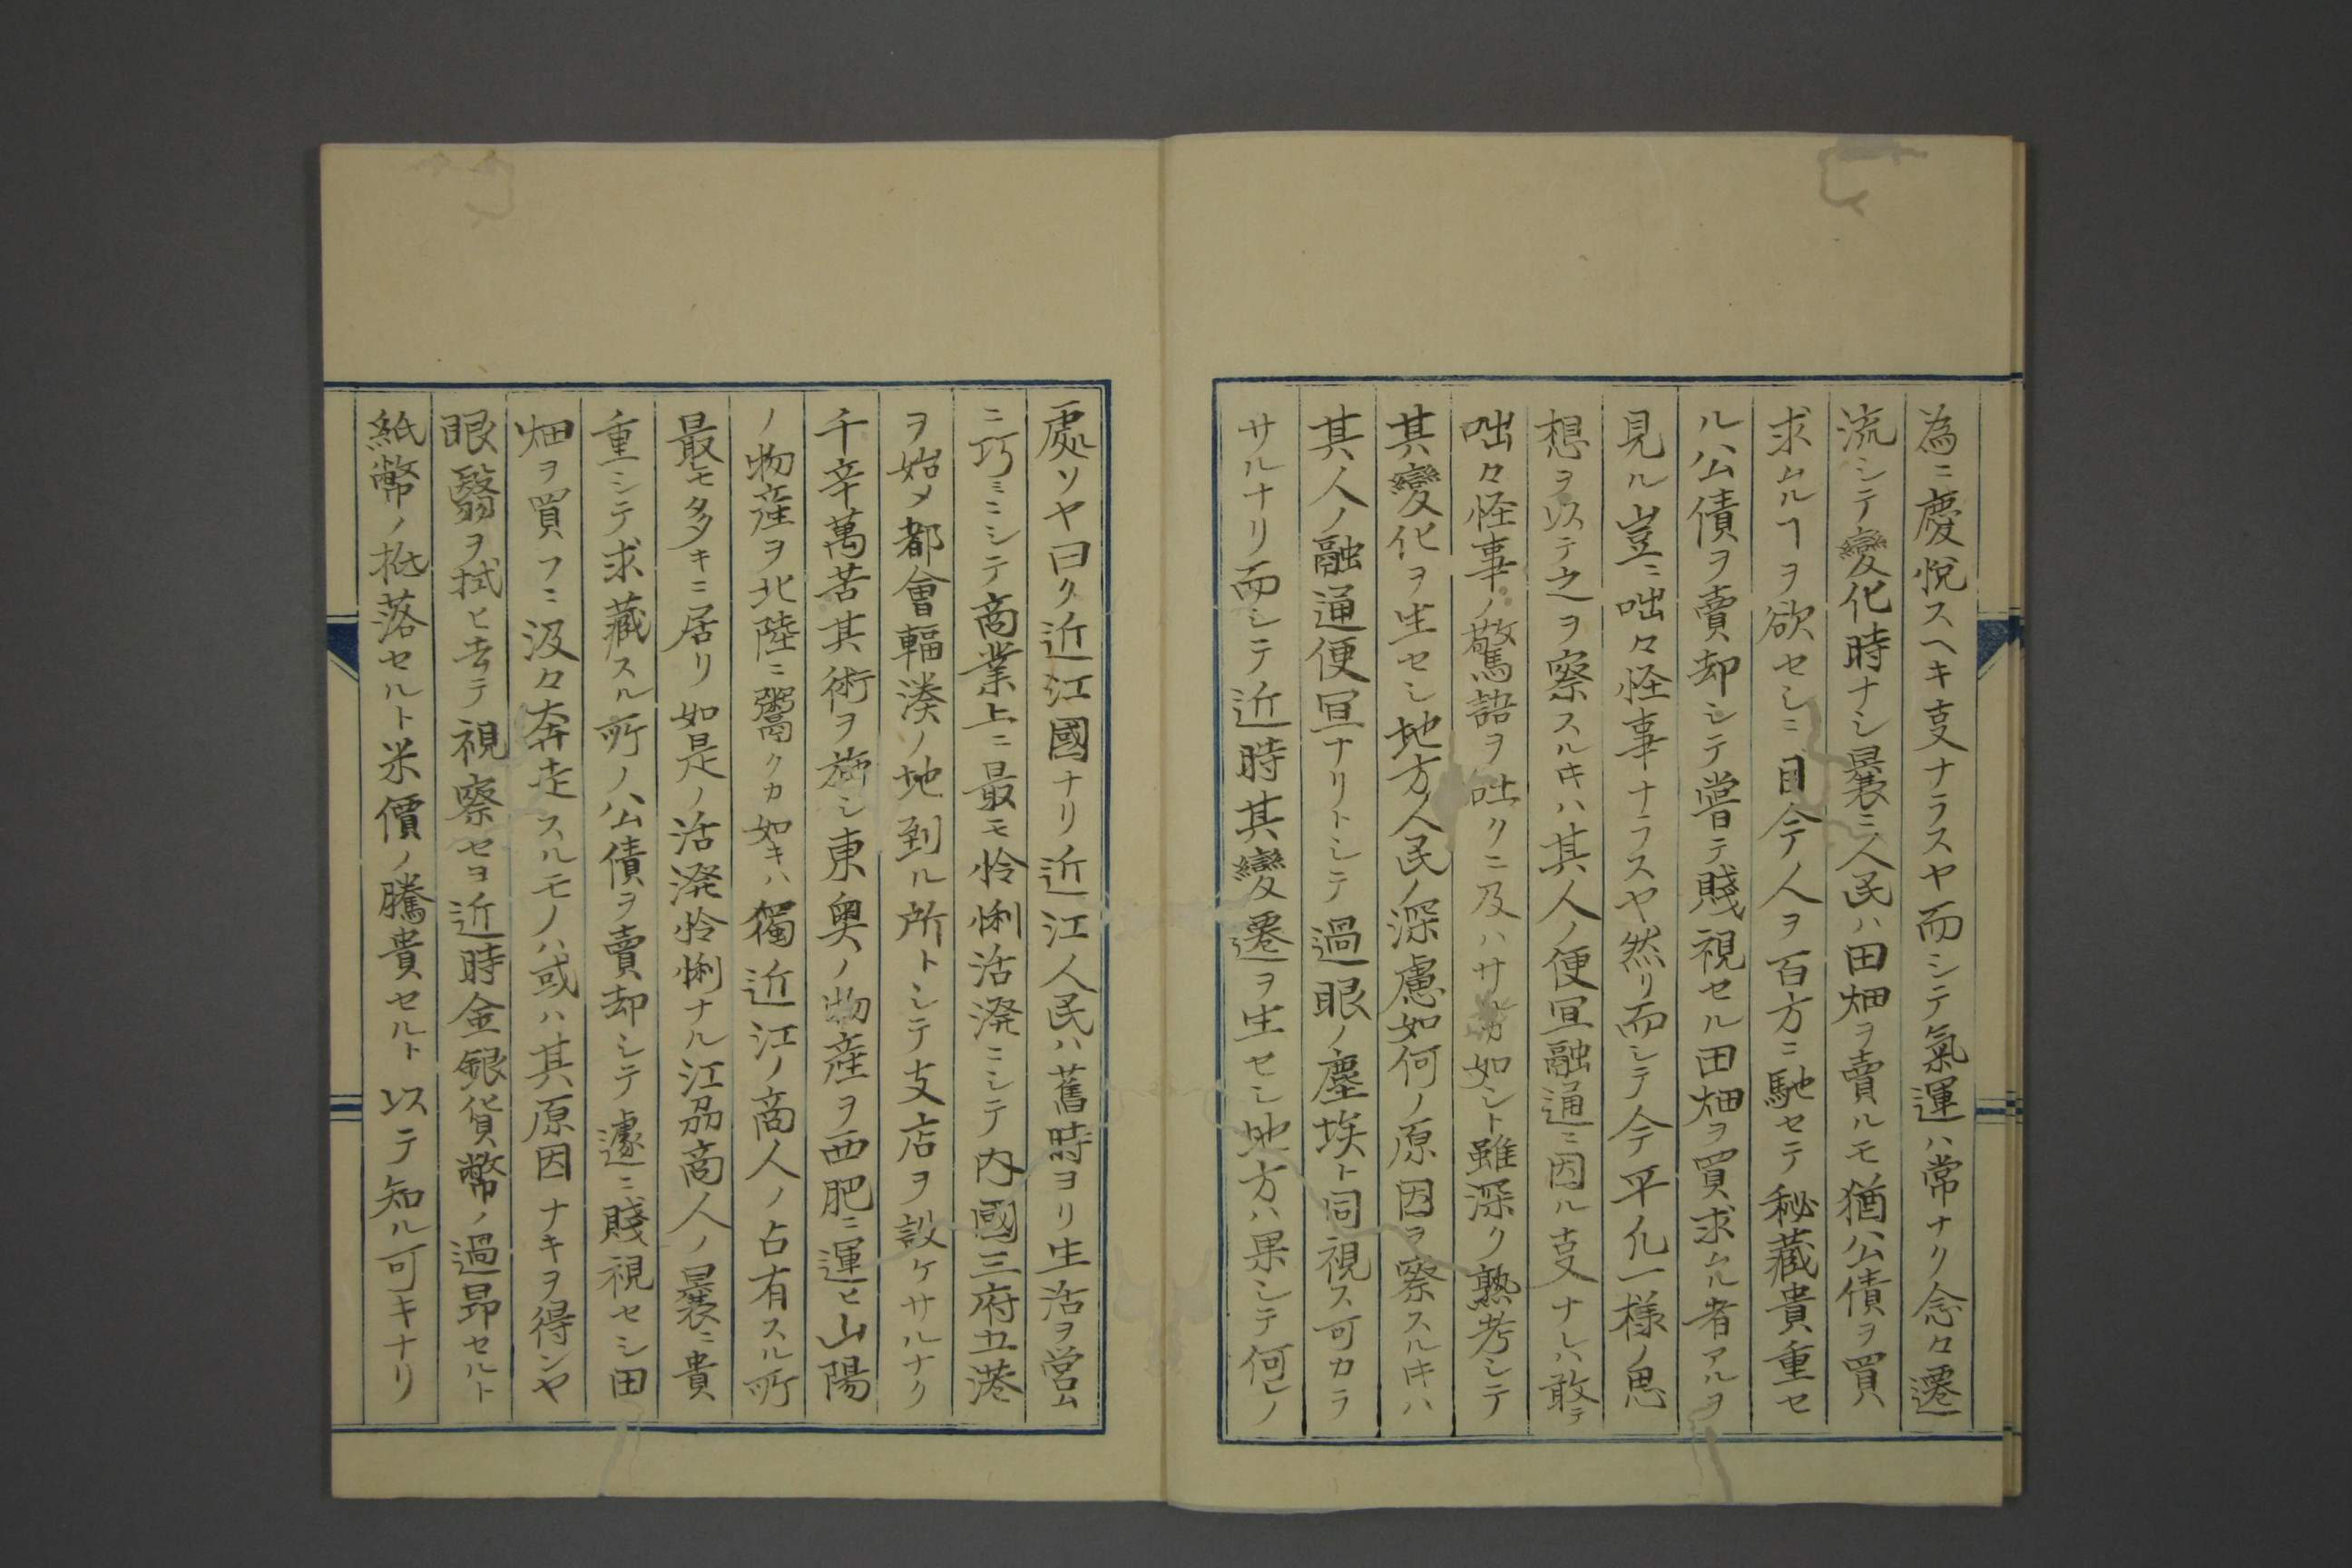 為ニ慶悦スヘキ叓ナラスヤ而シテ氣運ハ常ナク念々遷
流シテ變化時ナシ曩ニ人民ハ田畑ヲ賣ルモ猶公債ヲ買
求ムルヿヲ欲セシニ目今人ヲ百方ニ馳セテ秘藏貴重セ
ル公債ヲ賣却シテ嘗テ賤視セル田畑ヲ買求ムル者アルヲ
見ル豈ニ咄々怪事ナラスヤ然リ而シテ今平凢一様ノ思
想ヲ以テ之ヲ察スルキハ其人ノ便宜融通ニ因ル叓ナレハ敢テ
咄々怪事ノ驚語ヲ吐クニ及ハサルカ如シト雖深ク熟考シテ
其變化ヲ生セシ地方人民ノ深慮如何ノ原因ヲ察スルキハ
其人ノ融通便宜ナリトシテ過眼ノ塵埃ト同視ス可カラ
サルナリ而シテ近時其變遷ヲ生セシ地方ハ果シテ何ノ
處ソヤ曰ク近江國ナリ近江人民ハ舊時ヨリ生活ヲ営ム
ニ巧ミニシテ商業上ニ最モ怜悧活溌ニシテ内國三府五港
ヲ始メ都會輻湊ノ地到ル所トシテ支店ヲ設ケサルナク
千辛萬苦其術ヲ施シ東奥ノ物産ヲ西肥ニ運ヒ山陽
ノ物産ヲ北陸ニ鬻クカ如キハ獨近江ノ商人ノ占有スル所
最モ多キニ居リ如是ノ活溌怜悧ナル江刕商人ノ曩ニ貴
重シテ求藏スル所ノ公債ヲ賣却シテ遽ニ賤視セシ田
畑ヲ買フニ汲々奔走スルモノハ或ハ其原因ナキヲ得ンヤ
眼翳ヲ拭ヒ去テ視察セヨ近時金銀貨幣ノ過昂セルト
紙幣ノ抵落セルト米價ノ騰貴セルト以テ知ル可キナリ